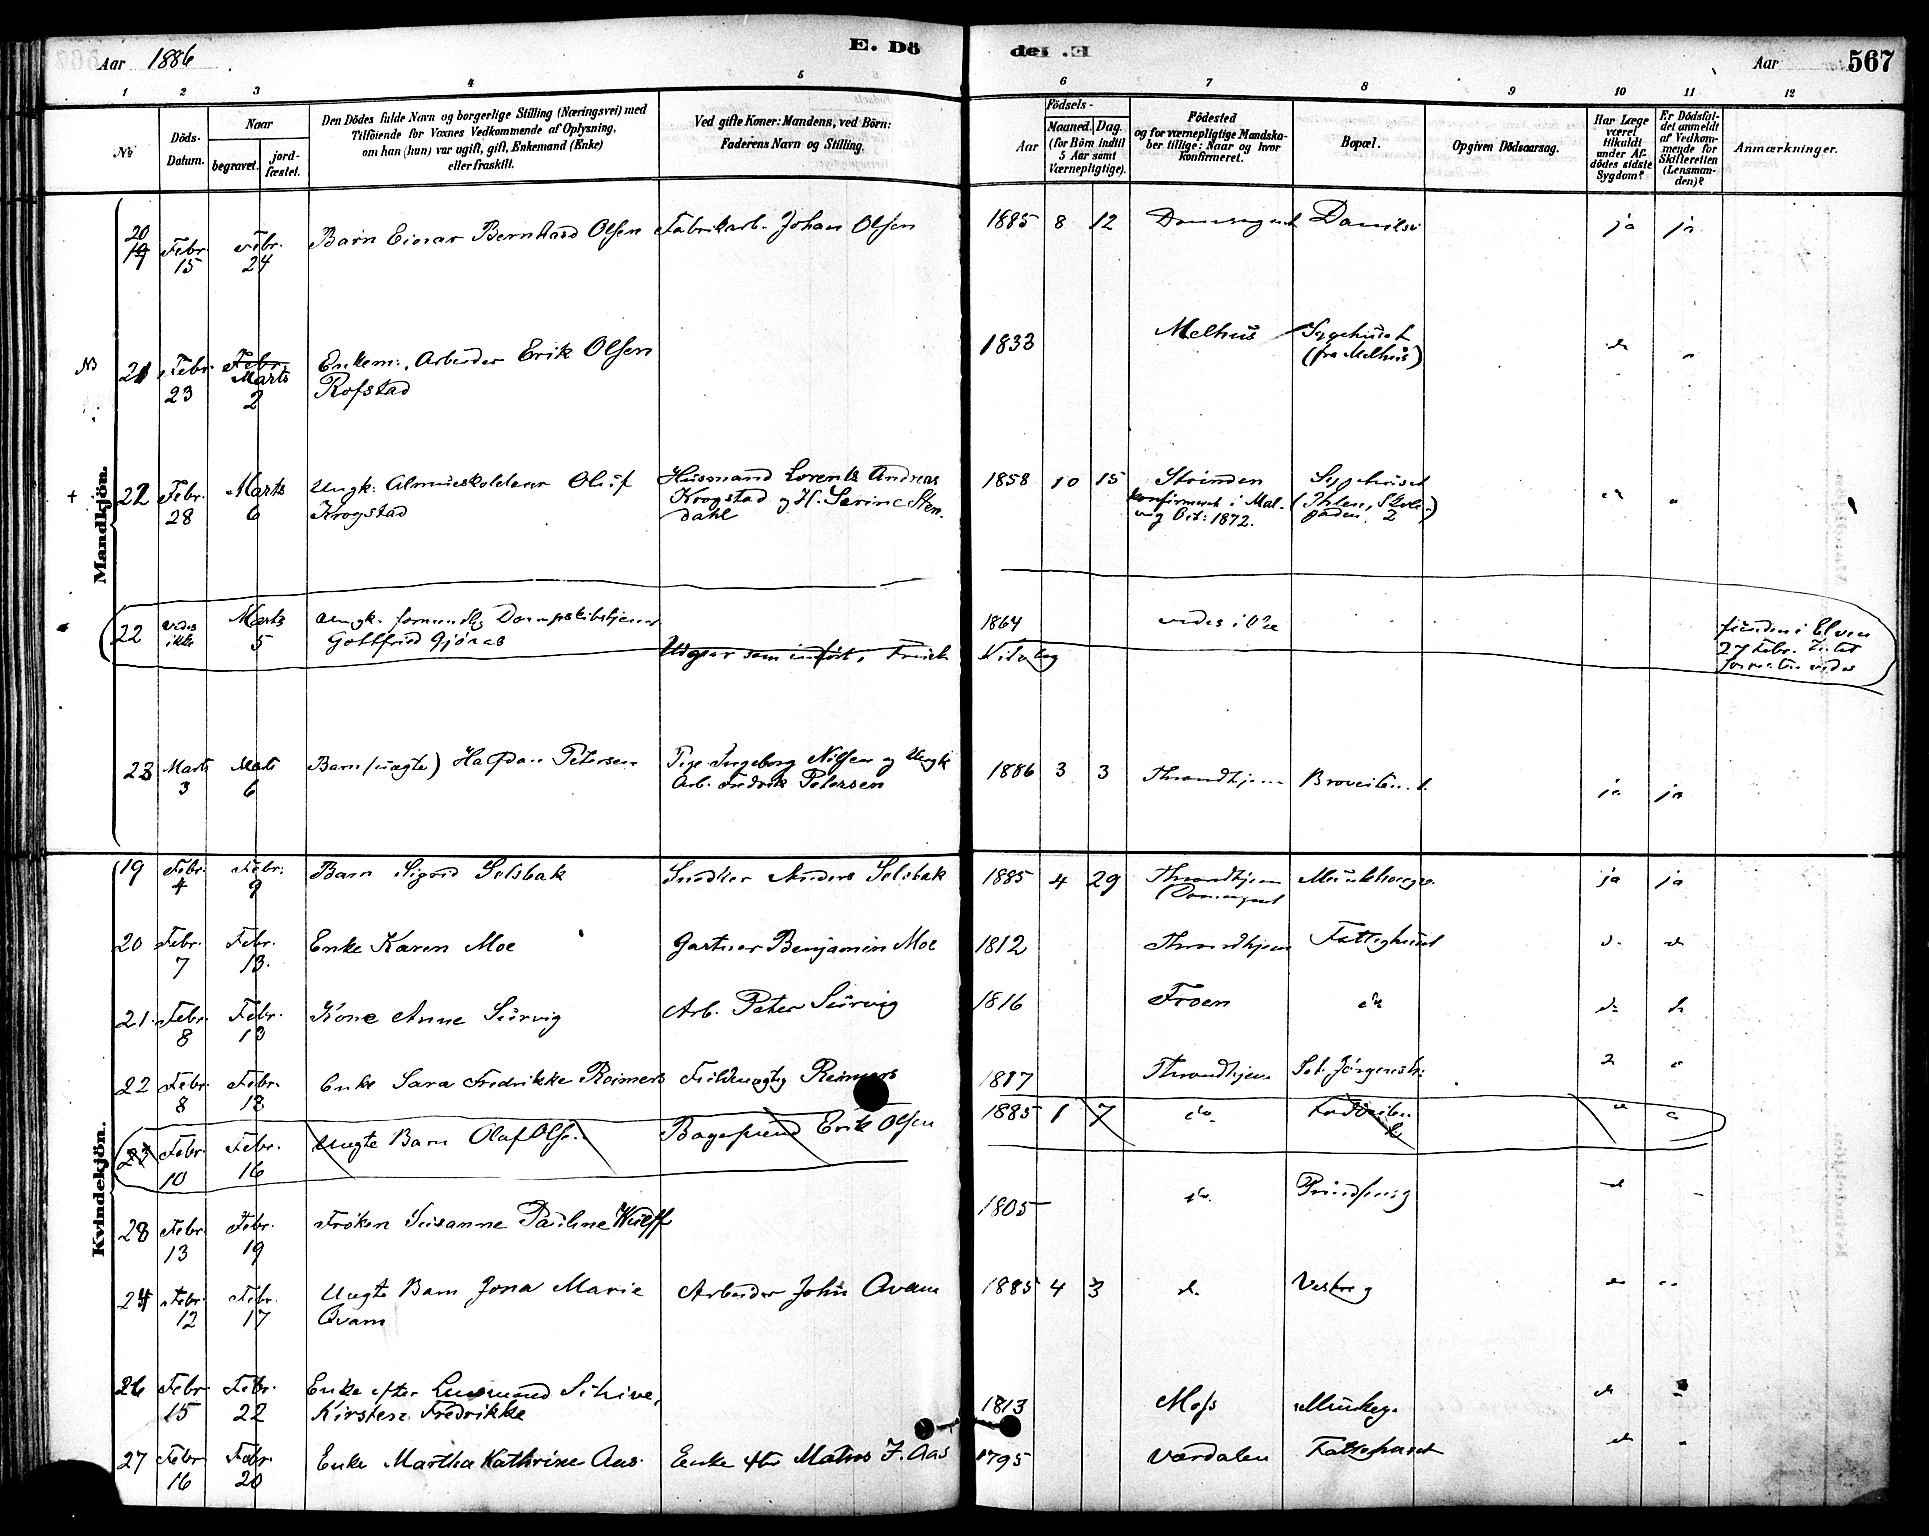 Aar 1886
E. Dö
567
Aar
1 2 3 4 5 6 7 8 9 10 11 12
No
Döds-Datum.
Naar
begravet.
jord-fæstet.
Den Dödes fulde Navn og borgerlige Stilling (Næringsvei) med
Tilföiende for Voxnes Vedkommende af Oplysning,
om han (hun) var ugift, gift, Enkemand (Enke)
eller fraskilt.
Ved gifte Koner: Mandens, ved Börn:
Faderens Navn og Stilling.
Födsels-
Aar
Maaned. Dag.
(for Börn indtil
5 Aar samt
Værnepligtige).
Födested
og for værnepligtige Mandska-
ber tillige: Naar og hvor
konfirmeret.
Bopæl.
Opgiven Dödsaarsag.
Har Læge
været
tilkaldt
under Af-
dödes sidste
Sygdom?
Er Dödsfal-
det anmeldt
af Vedkom-
mende for
Skifteretten
(Lensman-
den)?
Anmærkninger.
Mandkjön.
20 19 Febr. 15 Febr. 24 Barn Einar Bernhard Olsen Fabrikarb. Johan Olsen 1885 8 12 ja ja
NB 21 Febr. 23 Febr. Marts 2 Enkem., Arbeider Erik Olsen 1833 Melhus Sygehuset
Rofstad (fra Melhus)
+ 22 Febr. 28 Marts 6 Ungk. Almueskolelærer Oluf Husmand Lorents Andreas 1858 10 15 Strinden Sygehuset
Krogstad Krogstad og H. Serine Sten- konfirmeret i Mal- (Ihlen, Skole-)
dahl vig Oct. 1872. gaden 2
22 vides ikke Marts 5 Ungk. Dampskibstjener 1864 vides ikke funden i Elven
Gottfried Gjönes 27 Febr.
Udgaar som indfört i
23 Marts 3 Marts 6 Barn (uægte) Halfdan Petersen Pige Ingeborg Nilsen og Ungk. 1886 3 3 Throndhjem Broveiten 1. ja ja
Arb. Fredrik Petersen
Kvindekjön.
19 Febr. 4 Febr. 9 Barn Sigrid Selsbak Snedker Anders Selsbak 1885 4 29 Throndhjem ja ja
20 Febr. 7 Febr. 13. Enke Karen Moe Gartner Benjamin Moe 1812 Throndhjem Fattighuset
21. Febr. 8 Febr. 13 Kone Anne Survig Arb. Peter Survig 1816 Froen do
22 Febr. 8 Febr. 13 Enke Sara Fredrikke Reimers Reimers 1817 Throndhjem Sct. Jörgenstr.
23 Febr. 10 Febr. 16 Uægte Barn Olaf Olsen Bagersvend Erik Olsen 1885 1 7 do.
23 Febr. 13 Febr. 19 Fröken Susanne Pauline Wulff 1805 do.
24 Febr. 12 Febr. 17 Uægte Barn Jona Marie Arbeider John Qvam 1885 4 3
Qvam
26 Febr. 15 Febr. 22 Enke efter Schive,
Kirsten Fredrikke 1813 Moss Munkeg.
27 Febr. 16 Febr. 20 Enke Martha Kathrine Aas. Enke efter J. Aas 1795 Værdalen Fattighuset